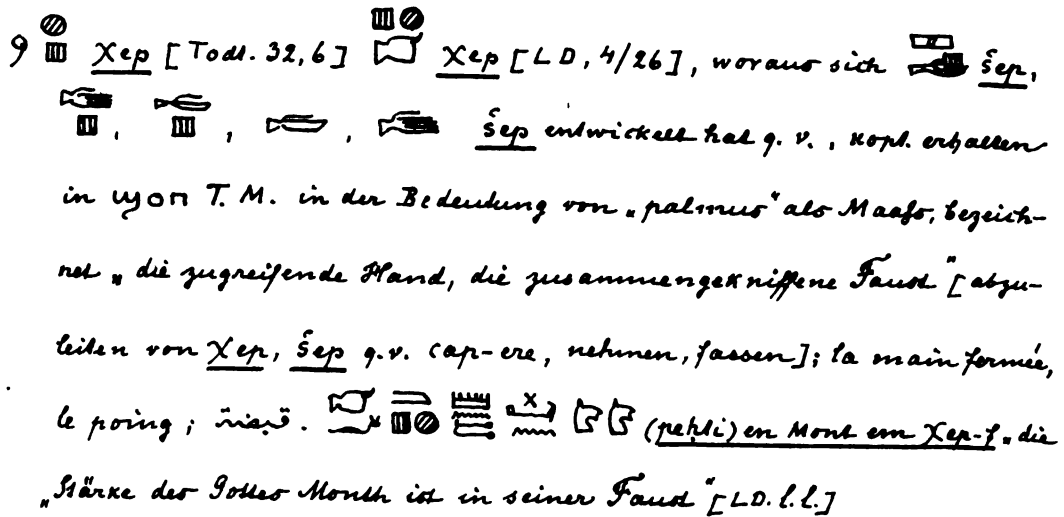 9 χep [Todt. 32,6] χep [LD, 4/26], woraus sich šep,
, , , šep entwickelt hat q. v., kopt. erhalten
in ϣⲟⲡ T. M. in der Bedeutung von „palmus" als Maaſs, bezeich-
net „die zugreifende Hand, die zusammengekniffene Faust" [abzu-
leiten von χep, šep q.v. cap-ere, nehmen, fassen]; la main formée,
le poing; . (peḥti) en Mont em χep-f „die
„Stärke des Gottes Month ist in seiner Faust" [LD. l.l.]